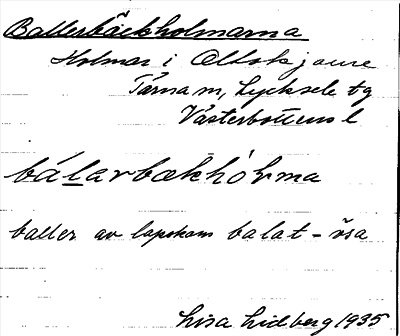 Ballerbäckholmarna
Holmar i Oltokjaure
Tärna sn, Lycksele tg
Västerbottens l
bálarbækhólma
baller av lapskans balat - ösa
Lisa Lidberg 1935